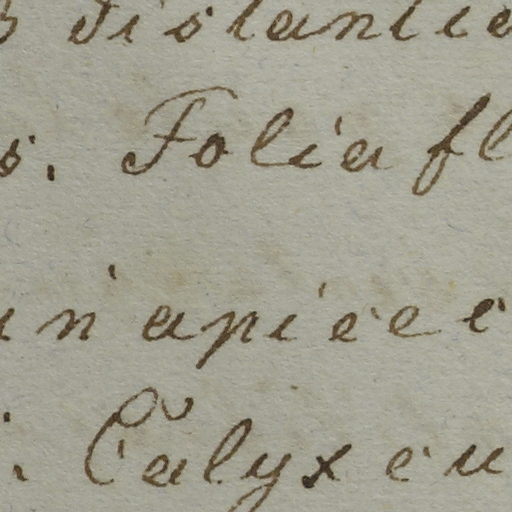 distantia
s. Folia fl
in apice e
. Calyx cu